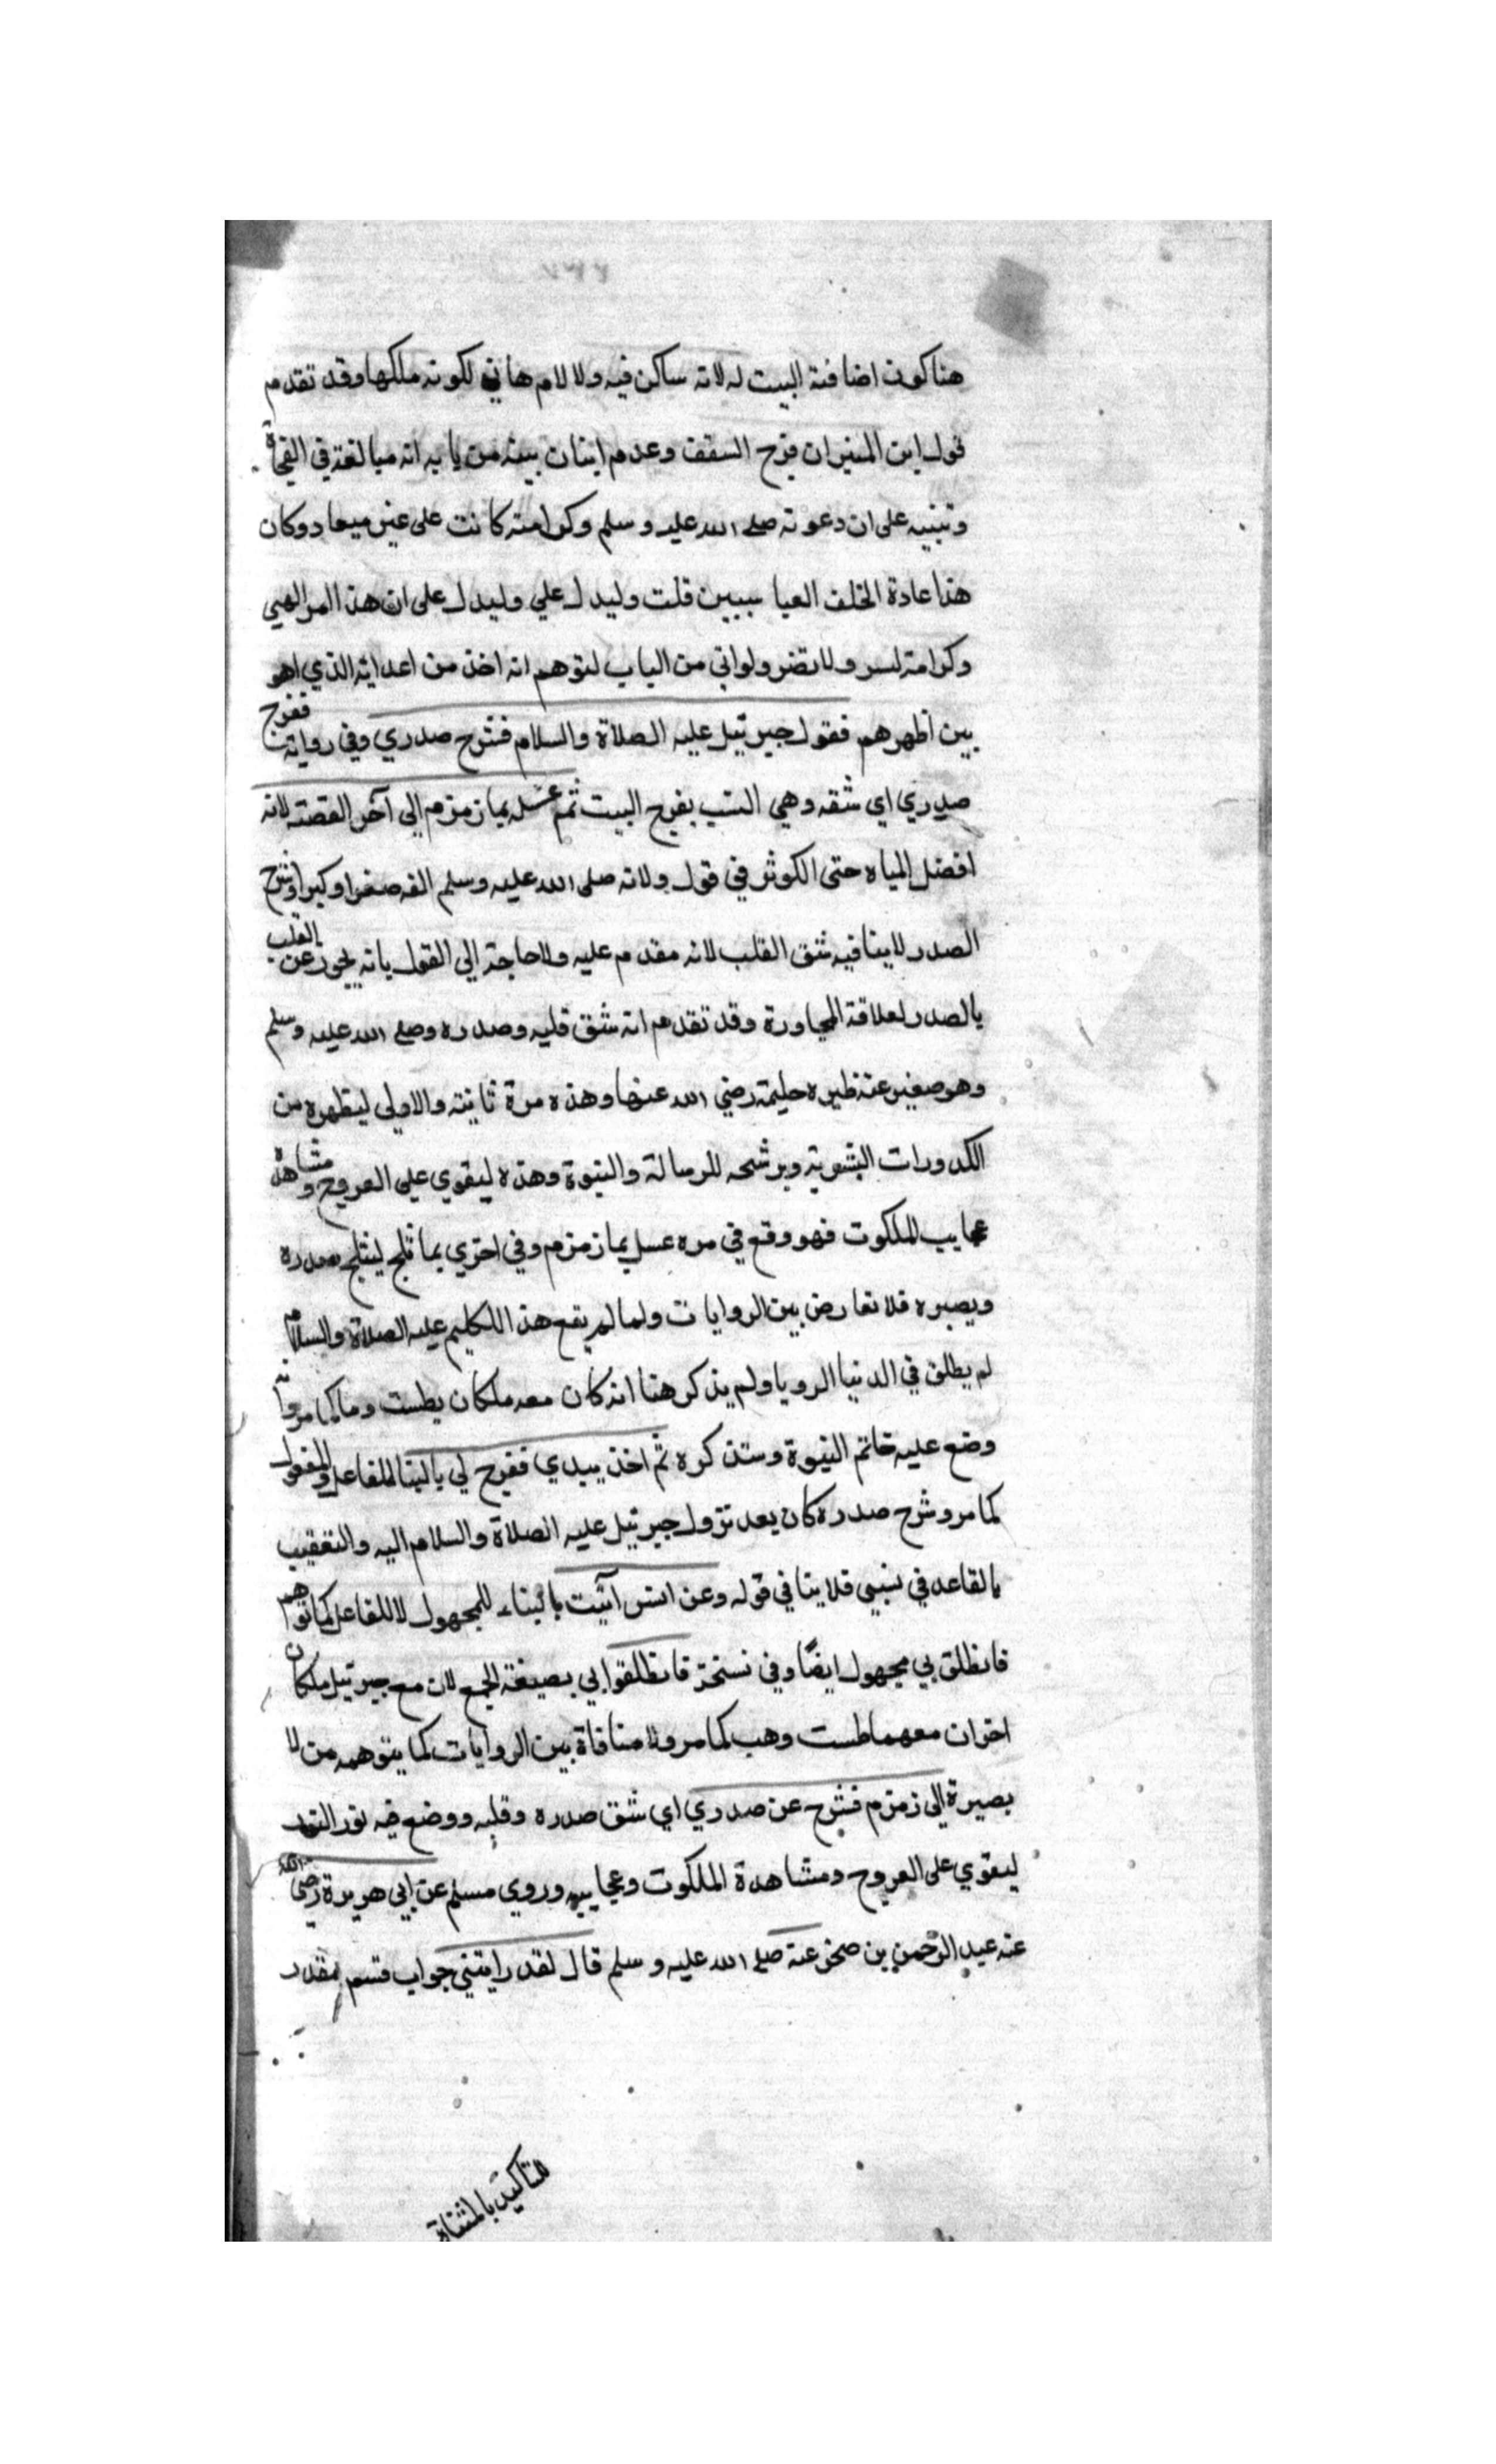 هنا كون اضافة البيت له لانه ساكن فيه ولالام هاني لكونه ملكها وقد تقدم
قول ابن المنير ان فرج السقف وعدم اتيان بيته من بابه انه مبالغة في الفجاة
وتنبيه على ان دعوته صلى الله عليه وسلم وكرامته كانت على غير ميعاد وكان
هذا عادة الخلف العباسيين قلت وليدل علي وليدل على ان هذا امر الهي
وكرامة لسر ولاتضر ولو اتي من الباب لتوهم انه اخذ من اعدايه الذي هو
بين اظهرهم فقول جبرئيل عليه الصلاة والسلام فشرح صدري وفي رواية ففرج
صدري اي شقه وهي انسب بفرج البيت ثم غسله بما زمزم الى آخر القصة لانه
افضل المياه حتى الكوثر في قول ولانه صلى الله عليه وسلم الفه صغرا وكبرا وشرح
الصدر لاينافيه شق القلب لانه مقدم عليه ولاحاجة الي القول بانه يجوز عن القلب
بالصدر لعلاقة المجاورة وقد تقدم انه شق قلبه وصدره وصلى الله عليه وسلم
وهو صغير عند ظيره حليمة رضي الله عنها وهذه مرة ثانية والاولي ليطهره من
الكدورات البشرية ويرشحه للرسالة والنبوة وهذه ليقوي علي العروج ومشاهدة
عجايب الملكوت فهو وقع في مره غسل بما زمزم وفي اخري بما ثلج ليثلج صدره
ويصبره فلا تعارض بين الروايات ولما لم يقع هذا للكليم عليه الصلاة والسلام
لم يطلق في الدنيا الرويا ولم يذكر هنا انه كان معه ملكان بطست وما كما مر وانه
وضع عليه خاتم النبوة وستذكره ثم اخذ بيدي ففرج لي بالبنا للفاعل والمفعول
كما مر وشرح صدره كان بعد نزول جبرئيل عليه الصلاة والسلام اليه والتعقيب
بالقاعد في نسبي فلا ينافي قوله وعن انس آتيت بالبناء للمجهول لا للفاعل كما توهم
فانطلق بي مجهول ايضًا وفي نسخة فانطلقوا بي بصيغة الجمع لان مع جبرئيل ملكان
اخران معهما طست وهب كما مر ولا منافاة بين الروايات كما يتوهمه من لا
بصيرة الى زمزم فشرح عن صدري اي شق صدره وقلبه ووضع فيه نور
ليقوي على العروج ومشاهدة الملكوت وعجايبه وروي مسلم عن ابي هريرة رضي الله
عنه عبد الرحمن بن صخر عنه صلى الله عليه وسلم قال لقد رايتني جواب قسم مقدر
للتاكيد بالمثناة